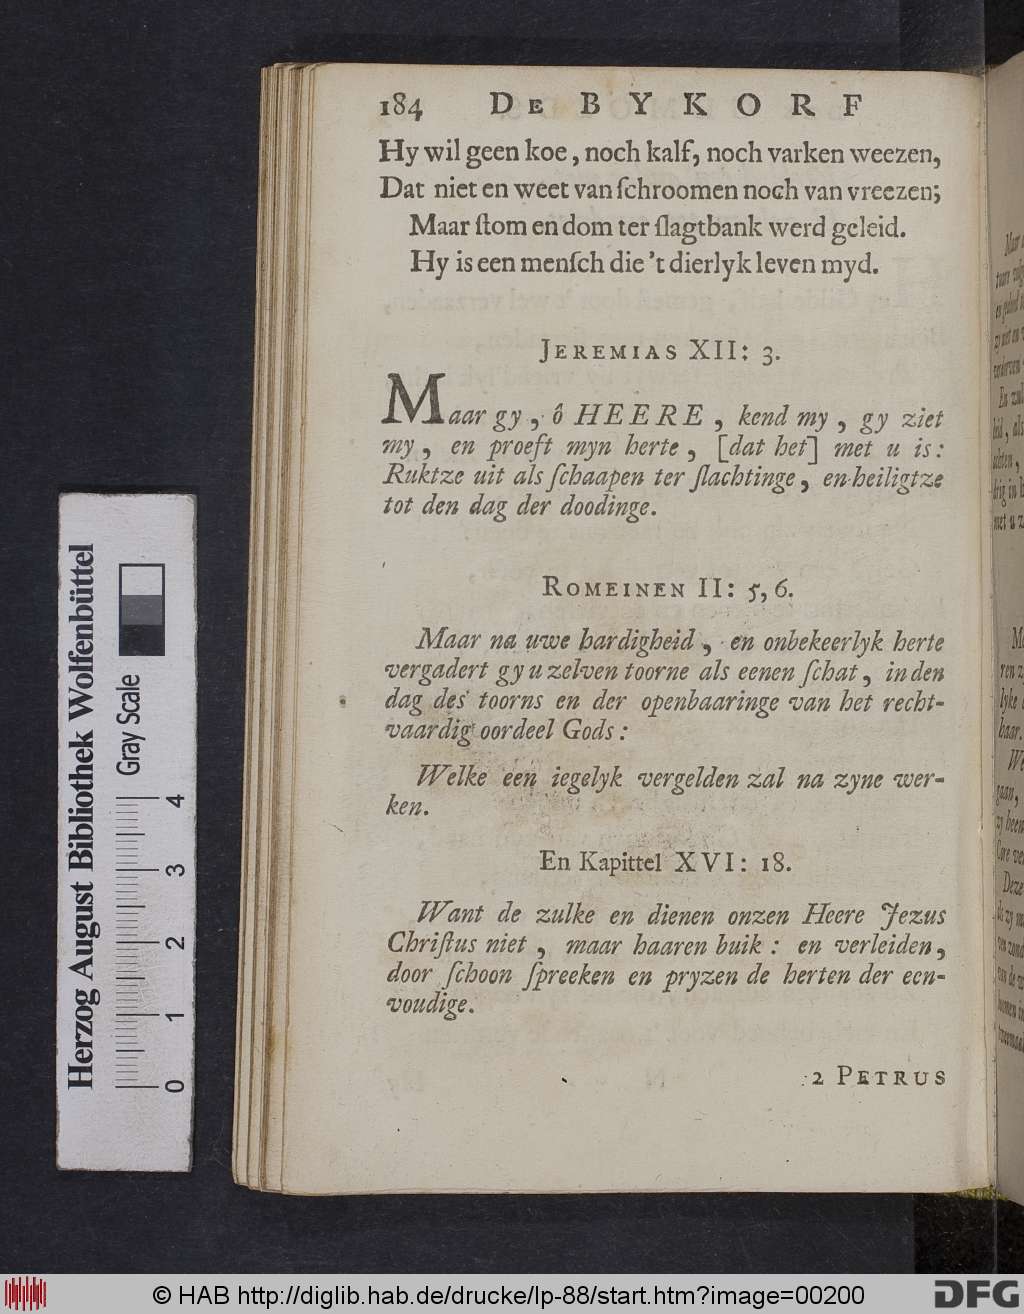 184 De BYKORF
Hy wil geen koe, noch kalf, noch varken weezen,
Dat niet en weet van ſchroomen noch van vreezen;
Maar ſtom en dom ter ſlagtbank werd geleid.
Hy is een menſch die 't dierlyk leven myd.
JEREMIAS XII: 3.
Maar gy, ô HEERE, kend my, gy ziet
my, en proeft myn herte, [dat het] met u is:
Ruktze uit als ſchaapen ter ſlachtinge, en heiligtze
tot den dag der doodinge.
ROMEINEN II: 5, 6.
Maar na uwe hardigheid, en onbekeerlyk herte
vergadert gy u zelven toorne als eenen ſchat, in den
dag des toorns en der openbaaringe van het recht-
vaardig oordeel Gods:
Welke een iegelyk vergelden zal na zyne wer-
ken.
En Kapittel XVI: 18.
Want de zulke en dienen onzen Heere Jezus
Chriſtus niet, maar haaren buik: en verleiden,
door ſchoon ſpreeken en pryzen de herten der een-
voudige.
2 PETRUS
Herzog August Bibliothek Wolfenbüttel
Gray Scale
0 1 2 3 4
© HAB http://diglib.hab.de/drucke/lp-88/start.htm?image=00200
DFG